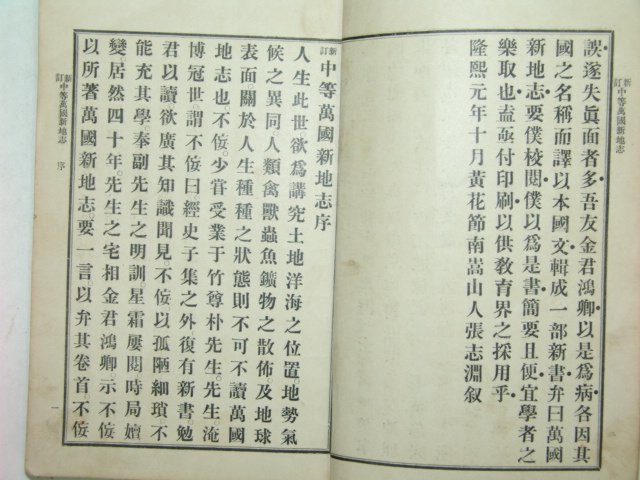 新訂 中等萬國新地志
誤遂失眞面者多吾友金君鴻卿以是爲病各因其
國之名稱而譯以本國文輯成一部新書弁曰萬國
新地志要僕校閱僕以爲是書簡要且便宜學者之
樂取也盍亟付印刷以供敎育界之採用乎
隆熙元年十月黃花節南嵩山人張志淵叙
新訂 中等萬國新地志序
人生此世欲爲講究土地洋海之位置地勢氣
候之異同人類禽獸蟲魚鑛物之散佈及地球
表面關於人生種種之狀態則不可不讀萬國
地志也不侫少嘗受業于竹尊朴先生先生淹
博冠世謂不侫曰經史子集之外復有新書勉
君以讀欲廣其知識聞見不侫以孤陋細瑣不
能充其學奉副先生之明訓星霜屢閱時局嬗
變居然四十年先生之宅相金君鴻卿示不侫
以所著萬國新地志要一言以弁其卷首不侫
新訂 中等萬國新地志 序
一